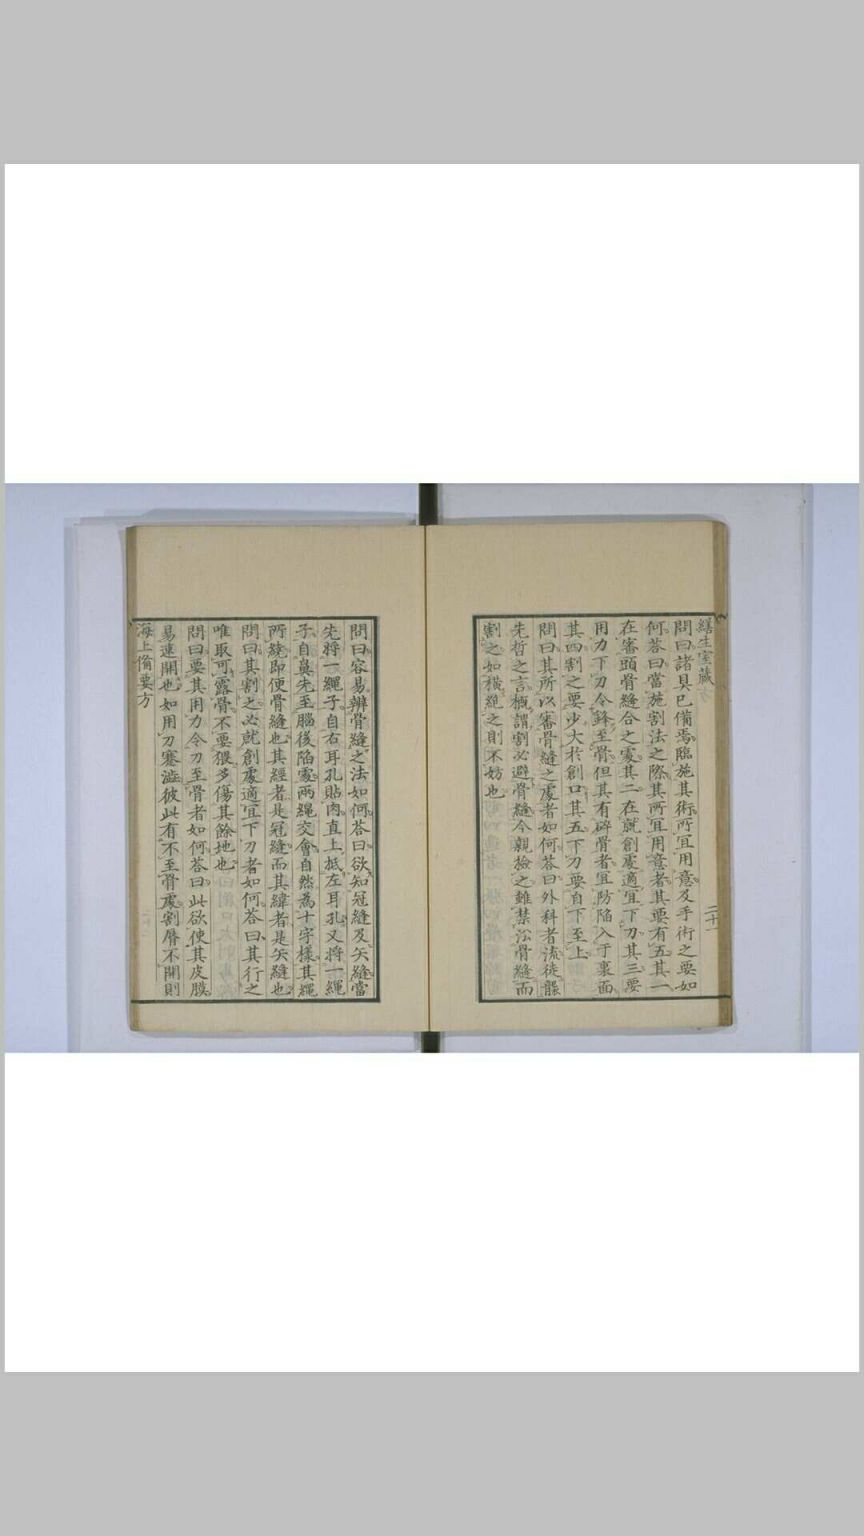 繕生室藏
二十一
問曰諸具已備焉臨施其術所宜用意及手術之要如
何荅曰當施割法之際其所宜用意者其要有五其一
在審頭骨縫合之處其二在就創處適宜下刀其三要
用力下刀令鋒至骨但其有碎骨者宜防陷入于裏面
其四割之要少大於創口其五下刀要自下至上
問曰其所以審骨縫之處者如何荅曰外科者流徒
先哲之言概謂割必避骨縫今親撿之雖禁沿骨縫而
割之如橫絕之則不妨也
問曰容易辨骨縫之法如何荅曰欲知冠縫及矢縫當
先將一繩子自右耳孔貼肉直上抵左耳孔又將一繩
子自鼻尖至腦後陷處兩繩交會自然為十字樣其繩
所繞即便骨縫也其經者是冠縫而其緯者是矢縫也
問曰其割之必就創處適宜下刀者如何荅曰其行之
唯取可露骨不要猥多傷其餘地也
問曰要其用力令刀至骨者如何荅曰此欲使其皮膜
易速開也如用刀蹇澁彼此有不至骨處割唇不開則
海上備要方